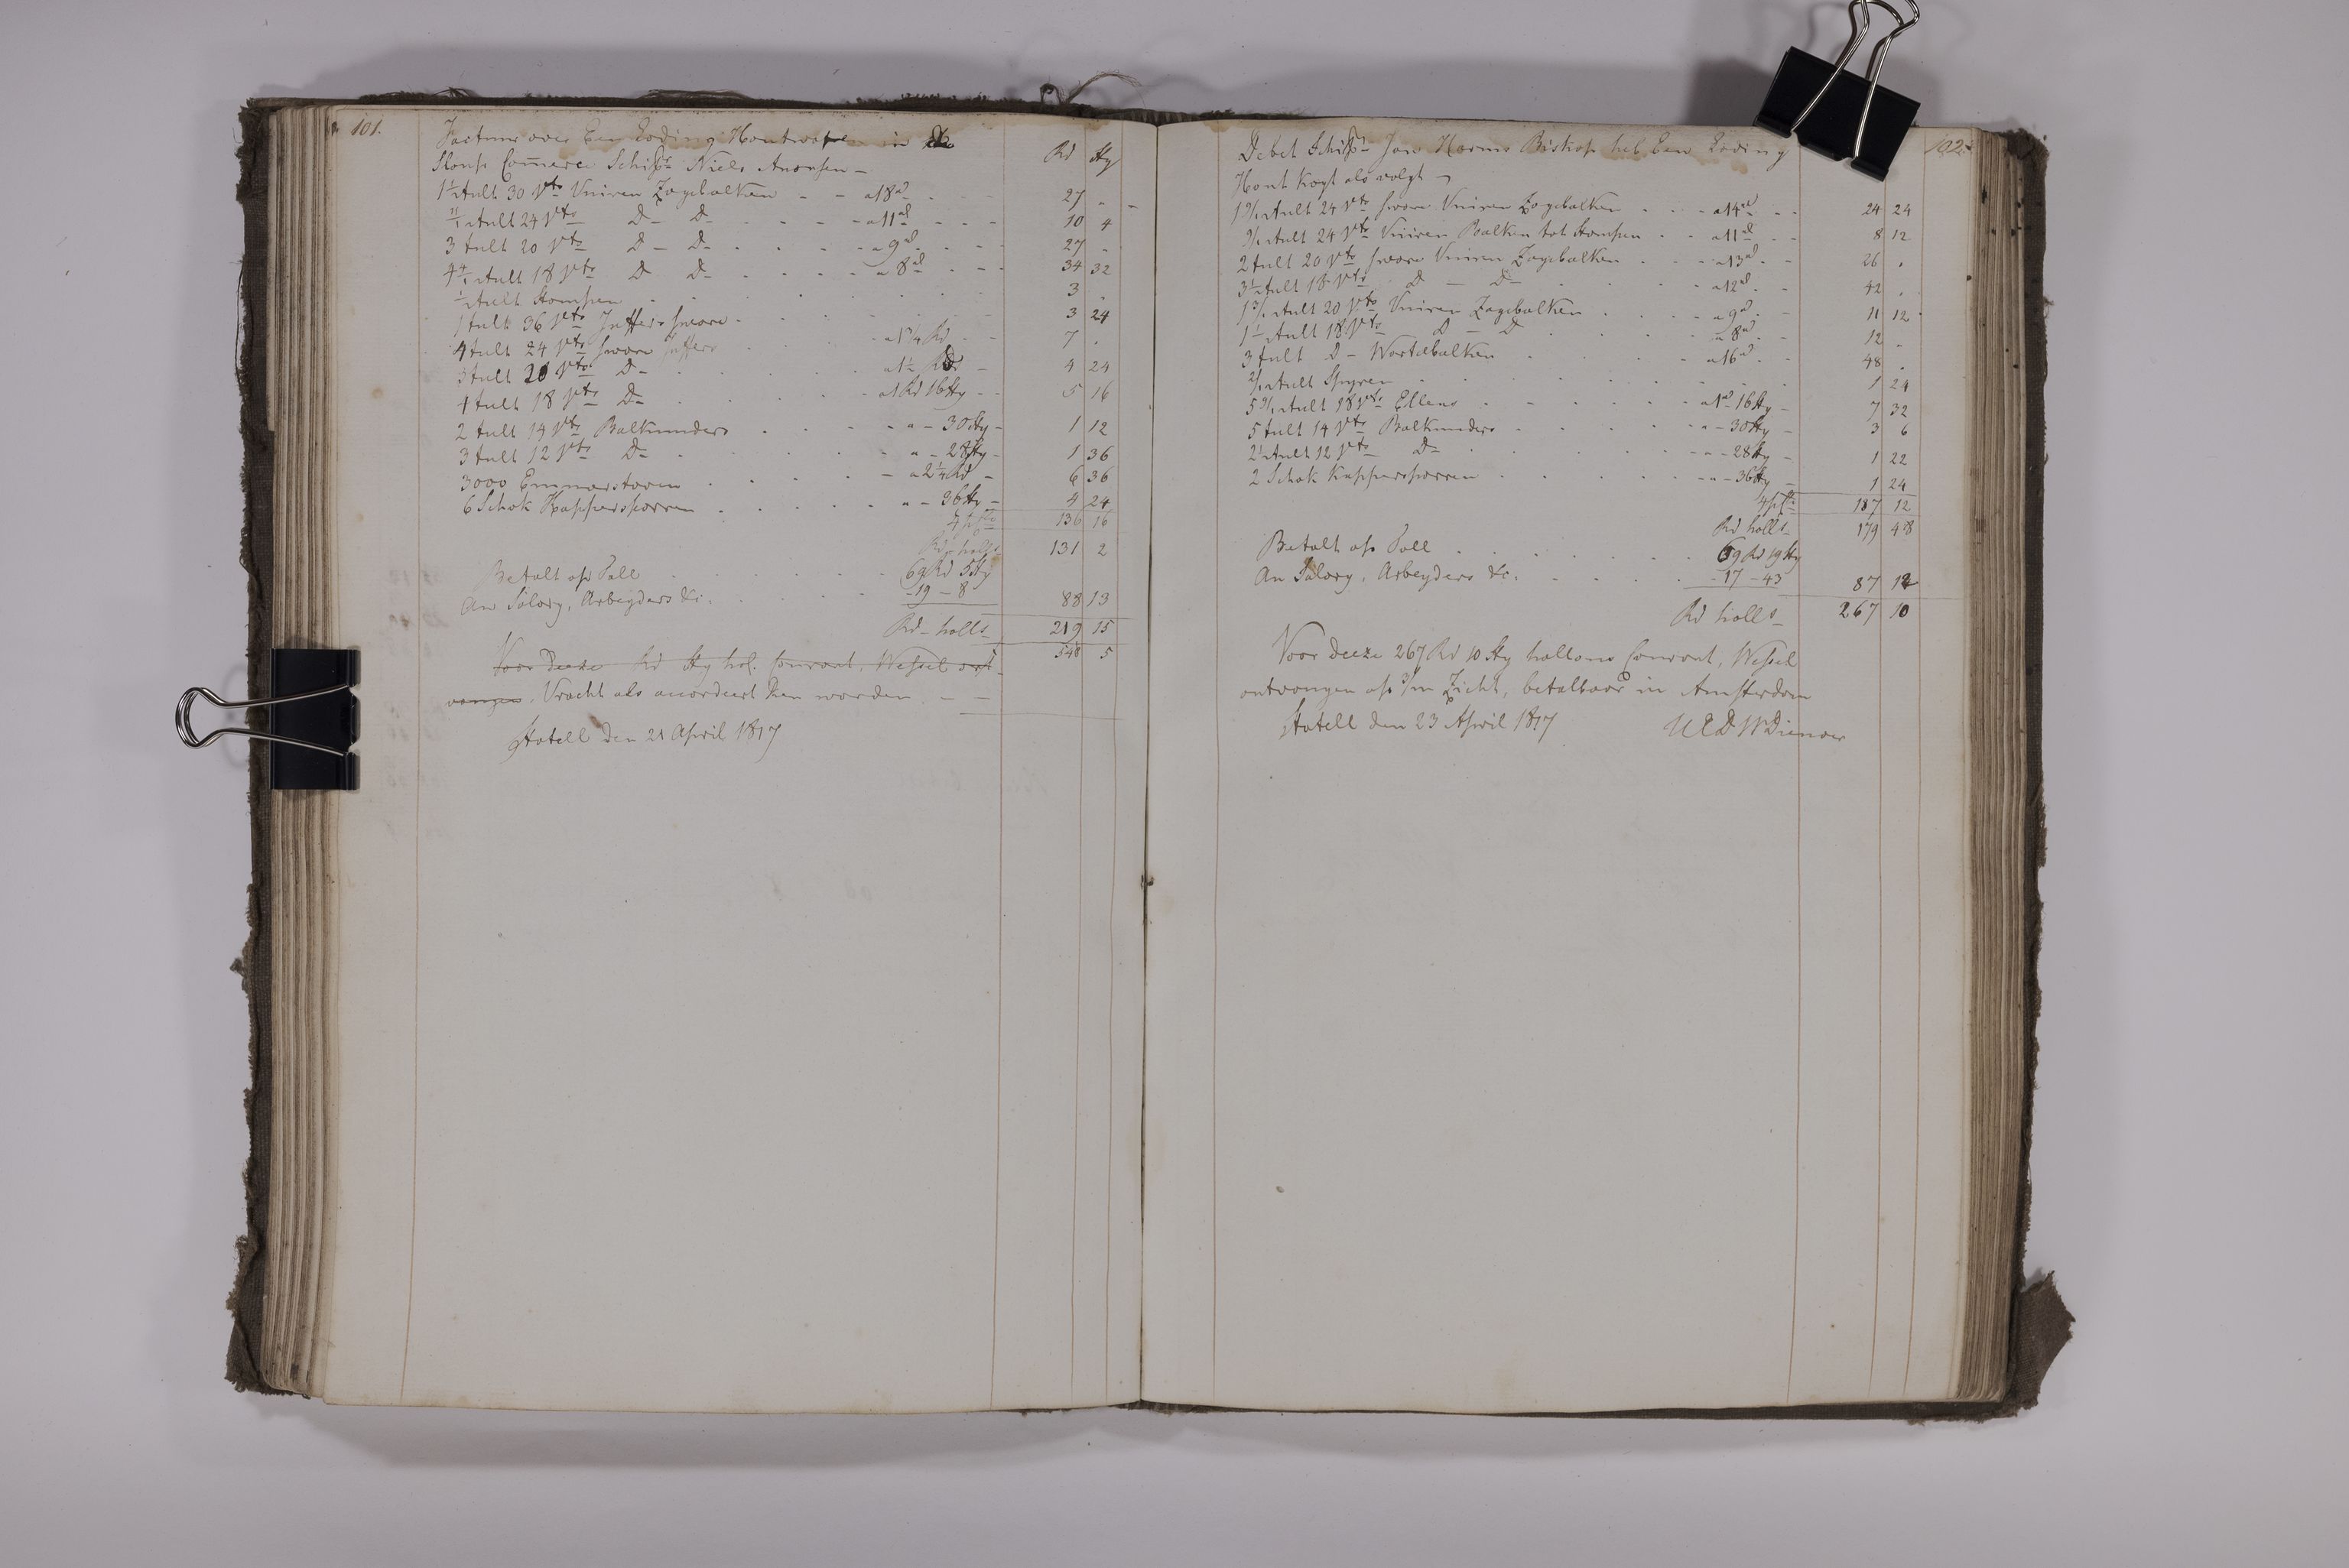 101.
Factuur over Een Lading Houtwaren in de
Sloup Comerce Schipr Niels Aronsen —
Rd Sty
1½ tult 30 vts Vuiren Zagebalken - - a 18rd - 27 "
11/12 tult 24 vts D - D - - - a 11rd - - 10 4
3 tult 20 vts D - D - - - a 9rd - - 27 "
4 4/12 tult 18 vts D D - - - a 8rd - - 34 32
½ tult Stompen 3 "
1 tult 36 vts Juffers sware 3 24
4 tult 24 vts sware Juffers - - a 1¾ Rd - 7 "
3 tult 20 vts D - - a 1½ Rd - 4 24
4 tult 18 vts D - - a 1 Rd 16 Sty - 5 16
2 tult 14 vts Balkunders - - " - 30 Sty - 1 12
3 tult 12 vts D - - " - 28 Sty - 1 36
3000 Emmerstaven - - a 2¼ Rd - 6 36
6 Schok Kappersporren - - " - 36 Sty - 4 24
4 p Cto 136 16
Rd - holls 131 2
Betalt op Toll 69 Rd 5 Sty
An Salary, Arbeyders &c. - 19 - 8 88 13
Rd - holls 219 15
548 5
Voor deeze Rd Sty hol. Courant, Wessel ont-
vangen. Vracht als accordeert ken worden — —
Statell den 21 April 1817
102.
Debet Schipr Jan Harms Biskop heb Een Lading
Hout kogt als volgt —
1 9/12 tult 24 vts sware Vuiren Zagebalken - - a 14rd - - 24 24
9/12 tult 24 vts Vuiren Balken tot Stompen - - a 11rd - - 8 12
2 tult 20 vts sware Vuiren Zagebalken - - a 13rd - 26 "
3½ tult 18 vts D — D - - - a 12rd - 42 "
1 3/12 tult 20 vts Vuiren Zagebalken - - a 9rd - 11 12
1½ tult 18 vts D - D - - a 8rd - 12 "
3 tult D - Wortebalken - - a 16rd - 48 "
2/12 tult Spyren 1 24
5 9/12 tult 18 vts Ellens - - a 1rd 16 Sty - 7 32
5 tult 14 vts Balkunders - - " - 30 Sty - 3 6
2½ tult 12 vts D - - " - 28 Sty - 1 22
2 Schok Kappersporren - - " - 36 Sty - 1 24
4 p Cto 187 12
Rd holls - 179 48
Betalt op Toll 69 Rd 19 Sty
An Salary, Arbeyders &c. - 17 - 43 87 12
Rd holls - 267 10
Voor deeze 267 Rd 10 Sty hollans Courant, Wessel
ontvangen op 3/m Zicht, betalbaar in Amsterdam
Statell den 23 April 1817 U E D W Dienaar